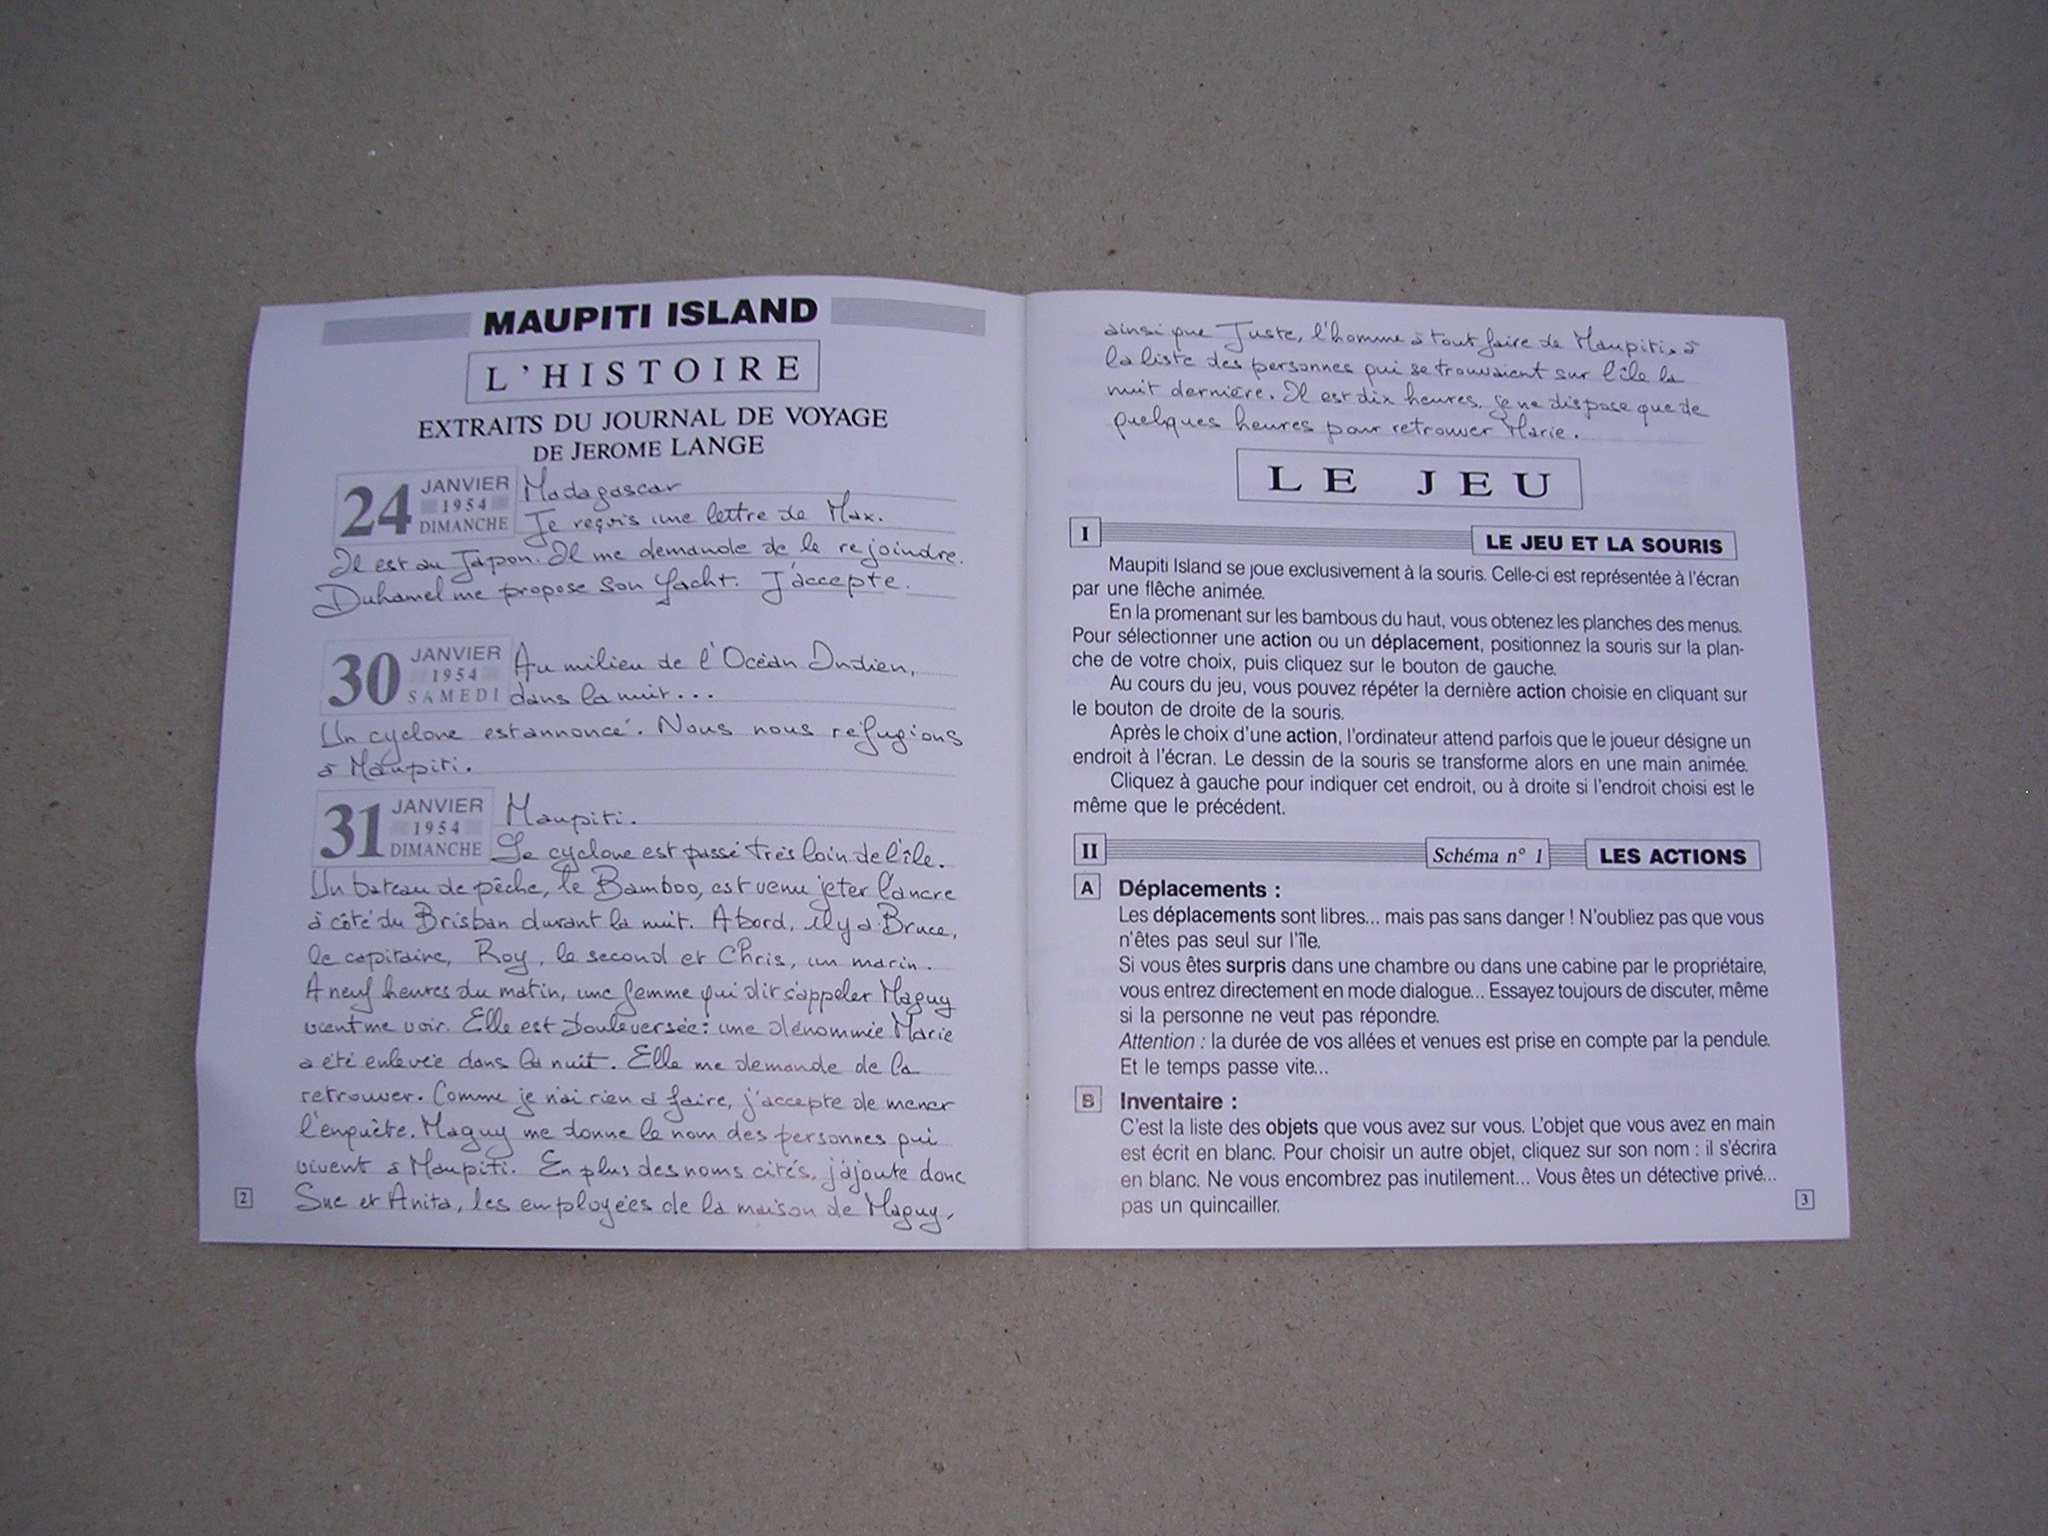 MAUPITI ISLAND
L'HISTOIRE
EXTRAITS DU JOURNAL DE VOYAGE
DE JEROME LANGE
24 JANVIER 1954 DIMANCHE
Madagascar
Je reçois une lettre de Max.
Il est au Japon. Il me demande de le rejoindre.
Duhamel me propose son yacht. J'accepte.
30 JANVIER 1954 SAMEDI
Au milieu de l'Océan Indien,
dans la nuit...
Un cyclone est annoncé. Nous nous réfugions
à Maupiti.
31 JANVIER 1954 DIMANCHE
Maupiti.
Le cyclone est passé très loin de l'île.
Un bateau de pêche, le Bamboo, est venu jeter l'ancre
à côté du Brisban durant la nuit. A bord, il y a Bruce,
le capitaine, Roy, le second et Chris, un marin.
A neuf heures du matin, une femme qui dit s'appeler Maguy
vient me voir. Elle est bouleversée : une dénommée Marie
a été enlevée dans la nuit. Elle me demande de la
retrouver. Comme je n'ai rien à faire, j'accepte de mener
l'enquête. Maguy me donne le nom des personnes qui
vivent à Maupiti. En plus des noms cités, j'ajoute donc
Sue et Anita, les employées de la maison de Maguy,
2
ainsi que Juste, l'homme à tout faire de Maupiti, à
la liste des personnes qui se trouvaient sur l'île la
nuit dernière. Il est dix heures, je ne dispose que de
quelques heures pour retrouver Marie.
LE JEU
I LE JEU ET LA SOURIS
Maupiti Island se joue exclusivement à la souris. Celle-ci est représentée à l'écran
par une flêche animée.
En la promenant sur les bambous du haut, vous obtenez les planches des menus.
Pour sélectionner une action ou un déplacement, positionnez la souris sur la plan-
che de votre choix, puis cliquez sur le bouton de gauche.
Au cours du jeu, vous pouvez répéter la dernière action choisie en cliquant sur
le bouton de droite de la souris.
Après le choix d'une action, l'ordinateur attend parfois que le joueur désigne un
endroit à l'écran. Le dessin de la souris se transforme alors en une main animée.
Cliquez à gauche pour indiquer cet endroit, ou à droite si l'endroit choisi est le
même que le précédent.
II Schéma n° 1 LES ACTIONS
A Déplacements :
Les déplacements sont libres... mais pas sans danger ! N'oubliez pas que vous
n'êtes pas seul sur l'île.
Si vous êtes surpris dans une chambre ou dans une cabine par le propriétaire,
vous entrez directement en mode dialogue... Essayez toujours de discuter, même
si la personne ne veut pas répondre.
Attention : la durée de vos allées et venues est prise en compte par la pendule.
Et le temps passe vite...
B Inventaire :
C'est la liste des objets que vous avez sur vous. L'objet que vous avez en main
est écrit en blanc. Pour choisir un autre objet, cliquez sur son nom : il s'écrira
en blanc. Ne vous encombrez pas inutilement... Vous êtes un détective privé...
pas un quincailler.
3